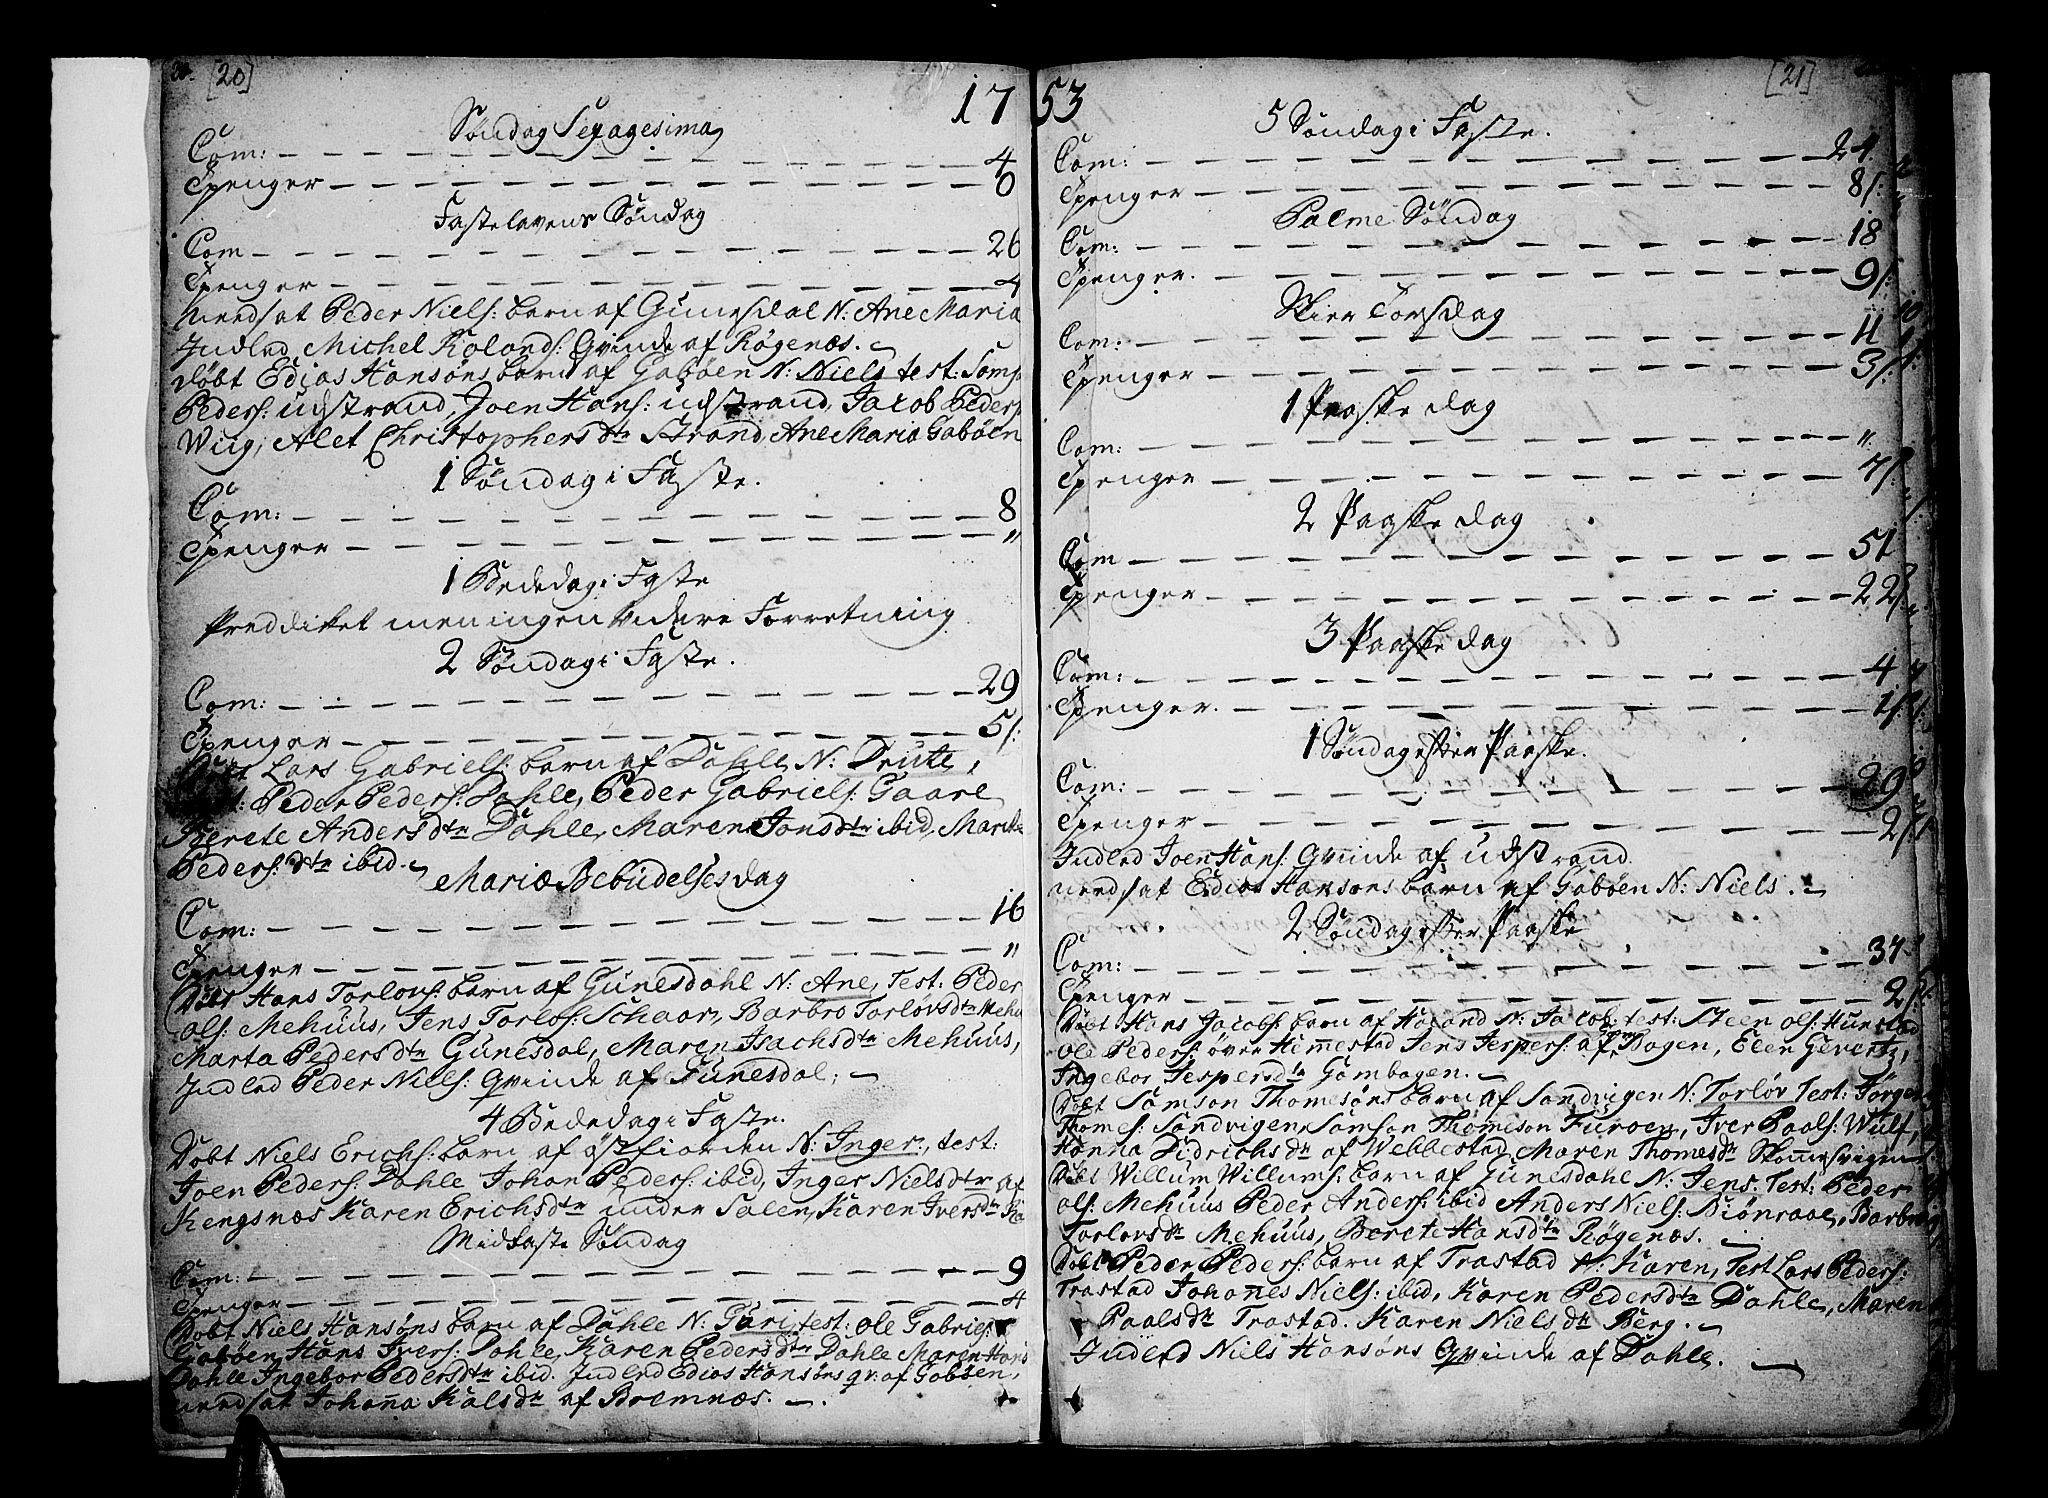 [20]
17
Søndag Sexagesima
Com: 4
Tpenger 6
Fastelavens Søndag
Com 26
Tpenger 4
Nerdsat Peder Niels: barn af Gunesdal N: Ane Maria
Indled Michel Rolands: Qvinde af Røgenæs.
Døbt Edias Hansøns barn af Gabøen N: Niels test:
Peders: udstrand, Joen Hans: udstrand, Jacob Peders
Wiig, Alet Christophersdtr Strand, Ane Maria Gabøen
1 Søndag i Faste.
Com: 8
Tpenger "
1 Bededag i Faste
Preddiket men ingen videre Forretning
2 Søndag i Faste.
Com: 29
Tpenger 5/:
Lars Gabriels: barn af Dahle N: Drute,
Peder Peders: Dahle, Peder Gabriels: Gaare
Berete Andersdtr Dahle, Maren Jonsdtr ibid, Marite
Peders: dtr ibid.
Mariæ Bebudelses dag
Com: 16
Tpenger "
Døbt Hans Torlovs: barn af Gunesdahl N: Ane, Test: Peder
ols: Mehuus, Jens Torlofs: Schaar, Barbro Torløvsdtr Mehu
Marta Pedersdtr Gunesdal, Maren Isachsdtr Mehuus,
Indled Peder Niels: Qvinde af Gunesdal;
4 Bededag i Faste.
Døbt Niels Erichs: barn af østfiorden N: Inger, test:
Joen Peders: Dahle Johan Peders: ibid, Inger Nielsdtr af
Kengsnæs Karen Erichsdtr under Salen, Karen Iversdtr
Midfaste Søndag
Com: 9
Tpenger 4
Døbt Niels Hansøns barn af Dahle N: Guri, test: ole Gabriels:
Gabøen, Hans Ivers: Dahle, Karen Pedersdtr Dahle Maren Hans
Dahle Ingebor Pedersdtr ibid. Indled Edias Hansøns qv: af Gabøen,
nerdsat Johana Kalsdtr af Bremnæs.
[21]
53
5 Søndag i Faste.
Com: 24
Tpenger 8/:
Palme Søndag
Com: 18
Tpenger. 9/:
Skier Torsdag
Com: 11
Tpenger 3/:
1 Paaske dag
Com: "
Tpenger 7/:
2 Paaske dag
Com 51
Tpenger 22/
3 Paaske dag
Com: 4
Tpenger. 1/:
1 Søndag efter Paaske.
Com: 29
Tpenger 2/:
Indled Joen Hans: Qvinde af udstrand.
nerdsat Edias Hansøns barn af Gabøen N: Niels.
2 Søndag efter Paaske
Com: 37
Tpenger 2/:
Døbt Hans Jacobs: barn af Haland N: Jacob, test: Steen ols: Hunstad
ole Peders: over Himestad Jens Jespers: af Bogen, Elen Gevertz,
Ingebor Jespersdtr Gambogen.
Døbt Samson Thomesøns barn af Sandvigen N: Torløv Test: Jørgen
Thomes: Sandvigen, Samson Thomeson Furøen, Iver Paals: Wulf,
Hanna Didrichsdtr af Webbestad, Maren Thomesdtr
Døbt Willum Willums: barn af Gunesdahl N: Jens, Test: Peder
ols: Mehuus Peder Anders: ibid Anders Niels: Biønraae, Barbro
Torlovsdtr Mehuus, Berete Hansdtr Røgenæs.
Døbt Peder Peders: barn af Trastad N: Karen, Test Lars Peders:
Trastad Johanes Niels: ibid, Karen Pedersdtr Dahle, Maren
Paalsdtr Trastad. Karen Nielsdtr Berg.
Indled Niels Hansøns Qvinde af Dahle.